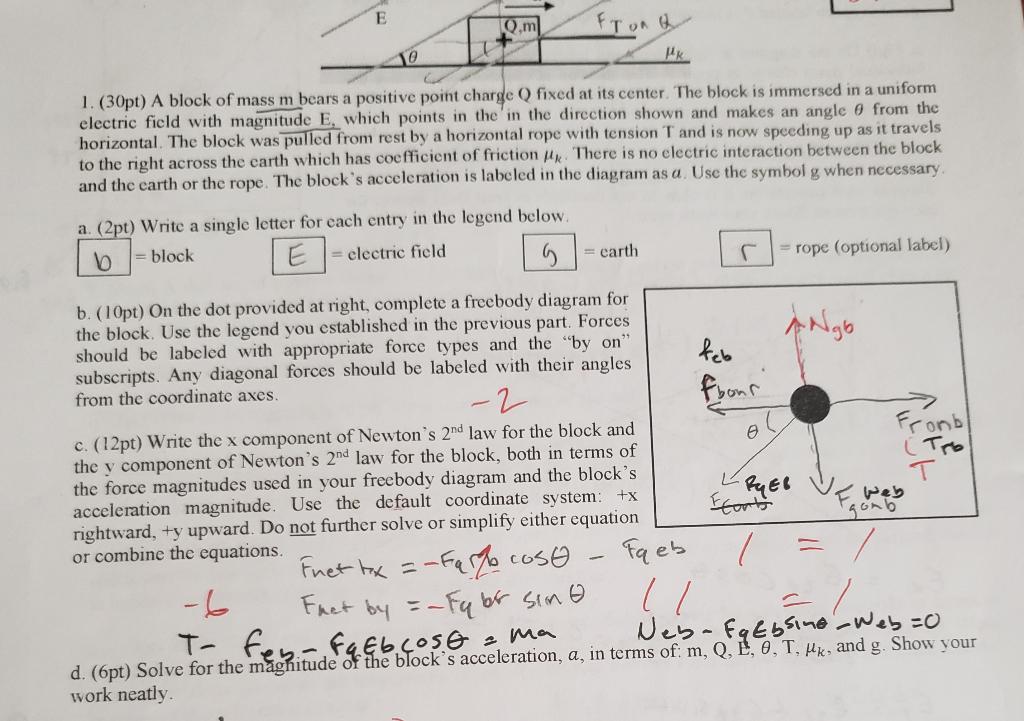 E
Q,m
F T on Q
θ
μk
1. (30pt) A block of mass m bears a positive point charge Q fixed at its center. The block is immersed in a uniform
electric field with magnitude E, which points in the in the direction shown and makes an angle θ from the
horizontal. The block was pulled from rest by a horizontal rope with tension T and is now speeding up as it travels
to the right across the earth which has coefficient of friction μk. There is no electric interaction between the block
and the earth or the rope. The block's acceleration is labeled in the diagram as a. Use the symbol g when necessary.
a. (2pt) Write a single letter for each entry in the legend below.
b = block E = electric field G = earth r = rope (optional label)
b. (10pt) On the dot provided at right, complete a freebody diagram for
the block. Use the legend you established in the previous part. Forces
should be labeled with appropriate force types and the "by on"
subscripts. Any diagonal forces should be labeled with their angles
from the coordinate axes.
-2
Ngb
feb
fbonr
θ
Fronb
Trb
T
FqEb
Web
Fgonb
c. (12pt) Write the x component of Newton's 2nd law for the block and
the y component of Newton's 2nd law for the block, both in terms of
the force magnitudes used in your freebody diagram and the block's
acceleration magnitude. Use the default coordinate system: +x
rightward, +y upward. Do not further solve or simplify either equation
or combine the equations.
cosθ - Fqeb / = /
-6
Fnet by = -Fq br sinθ / / = /
T - feb - FqEb cosθ = ma Neb - FqEb sinθ - Web = 0
d. (6pt) Solve for the magnitude of the block's acceleration, a, in terms of: m, Q, E, θ, T, μk, and g. Show your
work neatly.